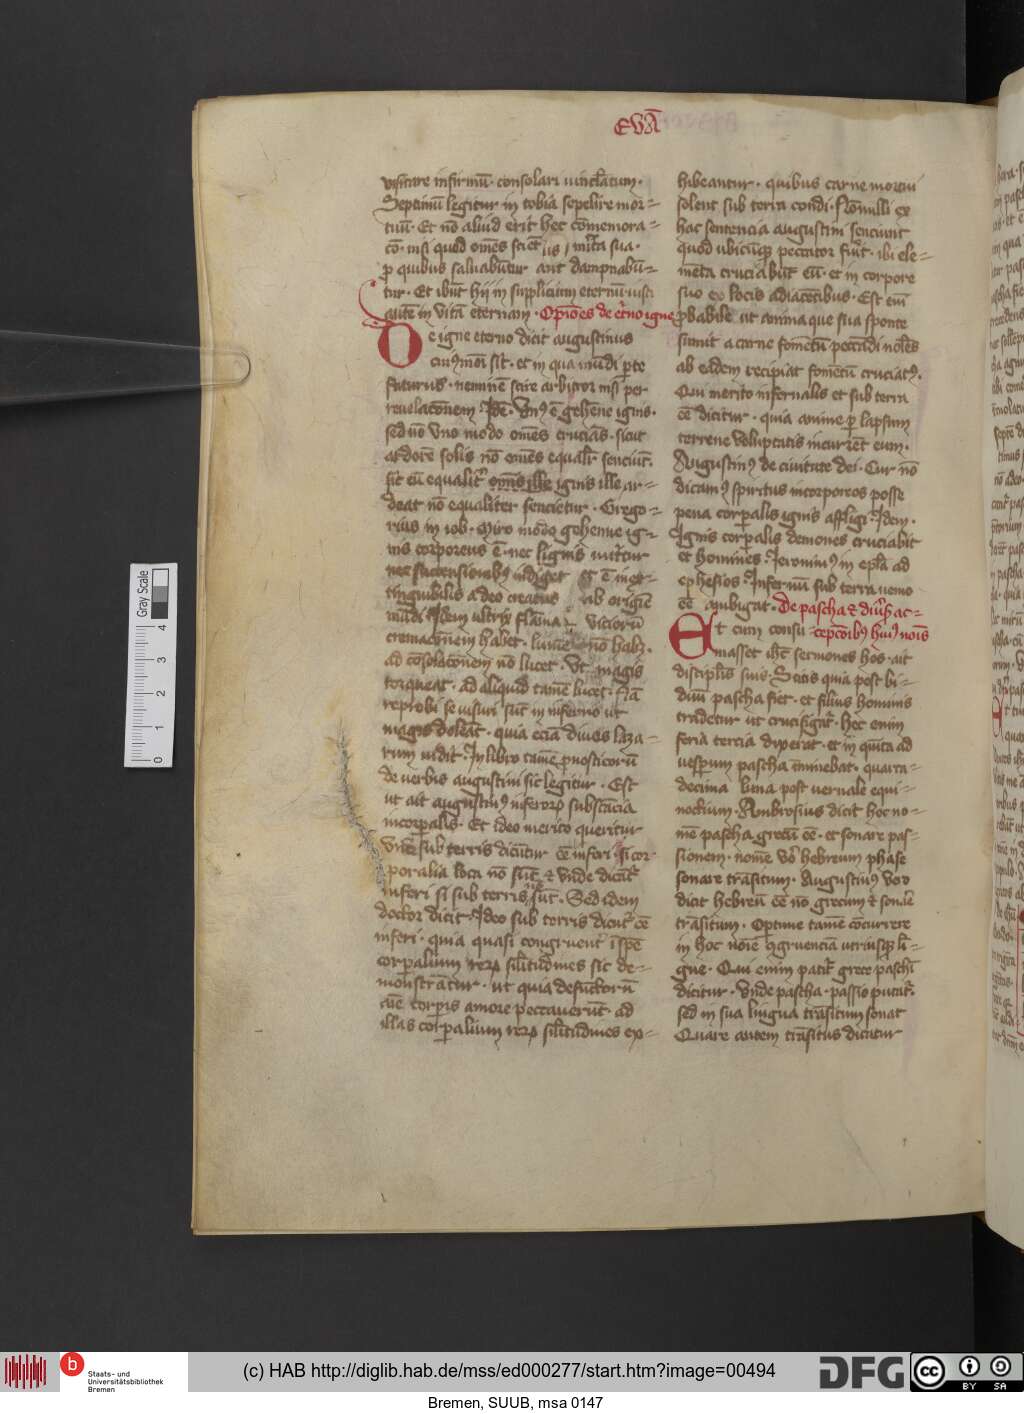 EVĀ
visitare infirmū · consolari vinclatum ·
Septimū legitur in tobia sepelire mor=
tuū · Et nō aliud erit hec cōmemora=
cō · nisi quod omēs sciēt sua ·
ꝑ quibus saluabūtur aut dampnabū=
tur · Et ibūt hij in suplicium eternū · iusti
autē in vitā eternam · Opiōes de et̓no igne
De igne eterno dicit augustinus
cuiꝰmōi sit · et in qua mūdi ꝑte
futurus · neminē scire arbitror nisi per
reuelacōnem · Idē · Vnꝰ ē gehēne ignis ·
sed nō vno modo omēs crucians · sicut
ardorē solis nō omēs equalit̓ senciūt ·
sic eū equalit̓ omīs ille ignis ille ar=
deat nō equaliter sencietur · Grego=
rius in iob · Miro modo gehenne ig=
nis corporeus ē · nec lignis nutritur
nec succensionibꝰ indiget ē inex=
tinguibilis a deo creatus ab origīe
mūdi · Idem ultrix flāma viciorū
cremacōnem habet · lumē nō habꝫ ·
ad cōsolacōnem nō lucet · Vt magis
torqueat · ad aliquid tamē lucet · Nā
reprobi se visuri sūt in inferno ut
magis doleāt · quia eciā diues laza=
rum vidit · In libro tamē ꝓnosticorū
de verbis augustini sic legitur · Est
ut ait augustinꝰ inferorꝫ substācia
incorꝑalis · Et ideo merito queritur
vnde sub terris dicūtur ēē inferi · si cor=
poralia loca nō sūt · et vnde dicūt̓
inferi si sub terris nō sūt · Sed idem
doctor dicit · Ideo sub terris dicūt̓ ēē
inferi · quia quasi congruent̓ ī spē
corꝑalium rerꝫ silitudīnes sic de=
monstrantur · ut quia defūctorū
aīe corꝑis amore peccauerūt · ad
illas corꝑalium rerꝫ silitudines ex=
hibeantur · quibus carne mortui
solent sub terra condi · Nōnulli ex
hac sentencia augustini senciunt
quod ubicūqꝫ peccator fuit̓ · ibi ele=
mēta cruciabūt eū · et in corpore
suo ex locis adiacētibus · Est eī
ꝓbabile ut anima que sua sponte
sumit a carne fomētū peccādi noles
ab eadem recipiat fomētū cruciatꝰ ·
Qui merito infernalis et sub terra
ēē dicitur · quia anime ꝑ lapsum
terrene voluptatis incurrēt eum ·
Augustinꝰ de ciuitate dei · Cur nō
dicamꝰ spiritus incorporeos posse
pena corꝑalis ignis affligi · Idem ·
Ignis corꝑalis demones cruciabit
et homines · Ieronimꝰ in epl̄a ad
ephesios · Infernū sub terra nemo
ēē ambigat · De pascha et diuīs ac=
Et cum consu= cepcōibꝰ huiꝰ noīs
masset ihc̄ sermones hos · ait
discipl̄is suis · Scitis quia post bi=
duū pascha fiet · et filius hominis
tradetur ut crucifigat̓ · hec enim
feria tercia dixerat · et in quīta ad
vesperum pascha īminebat · quarta=
decima luna post vernale equi=
noctium · Ambrosius dicit hoc no=
mē pascha grecū ēē · et sonare pas=
sionem · nomē vo̓ hebreum phase
sonare trāsitum · Augustinꝰ vero
dicit hebreū ēē nō grecum et sonāe
trāsitum · Optime tamē cōcurrere
in hoc noīe cōgruenciā utriusqꝫ li=
gue · Qui enim patit̓ grece paschī
dicitur · Vnde pascha · passio putat̓ ·
sed in sua lingua trāsitum sonat
Quare autem trāsitus dicatur
Gray Scale
0 1 2 3 4
Staats- und
Universitätsbibliothek
Bremen
(c) HAB http://diglib.hab.de/mss/ed000277/start.htm?image=00494
DFG
cc BY SA
Bremen, SUUB, msa 0147